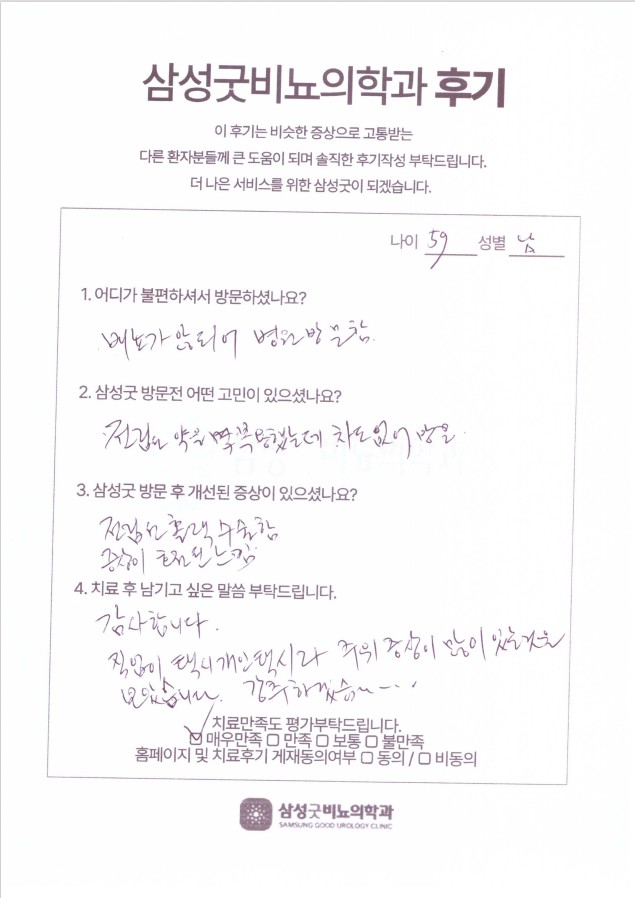 삼성굿비뇨의학과 후기
이 후기는 비슷한 증상으로 고통받는
다른 환자분들께 큰 도움이 되며 솔직한 후기작성 부탁드립니다.
더 나은 서비스를 위한 삼성굿이 되겠습니다.
나이 59 성별 남
1. 어디가 불편하셔서 방문하셨나요?
배뇨가 않되어 병원방문함.
2. 삼성굿 방문전 어떤 고민이 있으셨나요?
전립선 약을 복용했는데 차도 없어 방문
3. 삼성굿 방문 후 개선된 증상이 있으셨나요?
전립선 수술함
증상이 느낌
4. 치료 후 남기고 싶은 말씀 부탁드립니다.
감사합니다.
직업이 택시개인택시라 주위 증상이 많이 있는것을
보았습니다. 강추하겠습~~...
치료만족도 평가부탁드립니다.
☑ 매우만족 □ 만족 □ 보통 □ 불만족
홈페이지 및 치료후기 게재동의여부 □ 동의 / □ 비동의
삼성굿비뇨의학과
SAMSUNG GOOD UROLOGY CLINIC